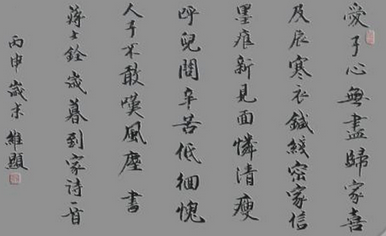 愛子心無盡歸家喜
及辰寒衣鍼綫密家信
墨痕新見面憐清瘦
呼兒問辛苦低徊愧
人子不敢嘆風塵 書
蔣士銓歲暮到家詩一首
丙申歲末 維題